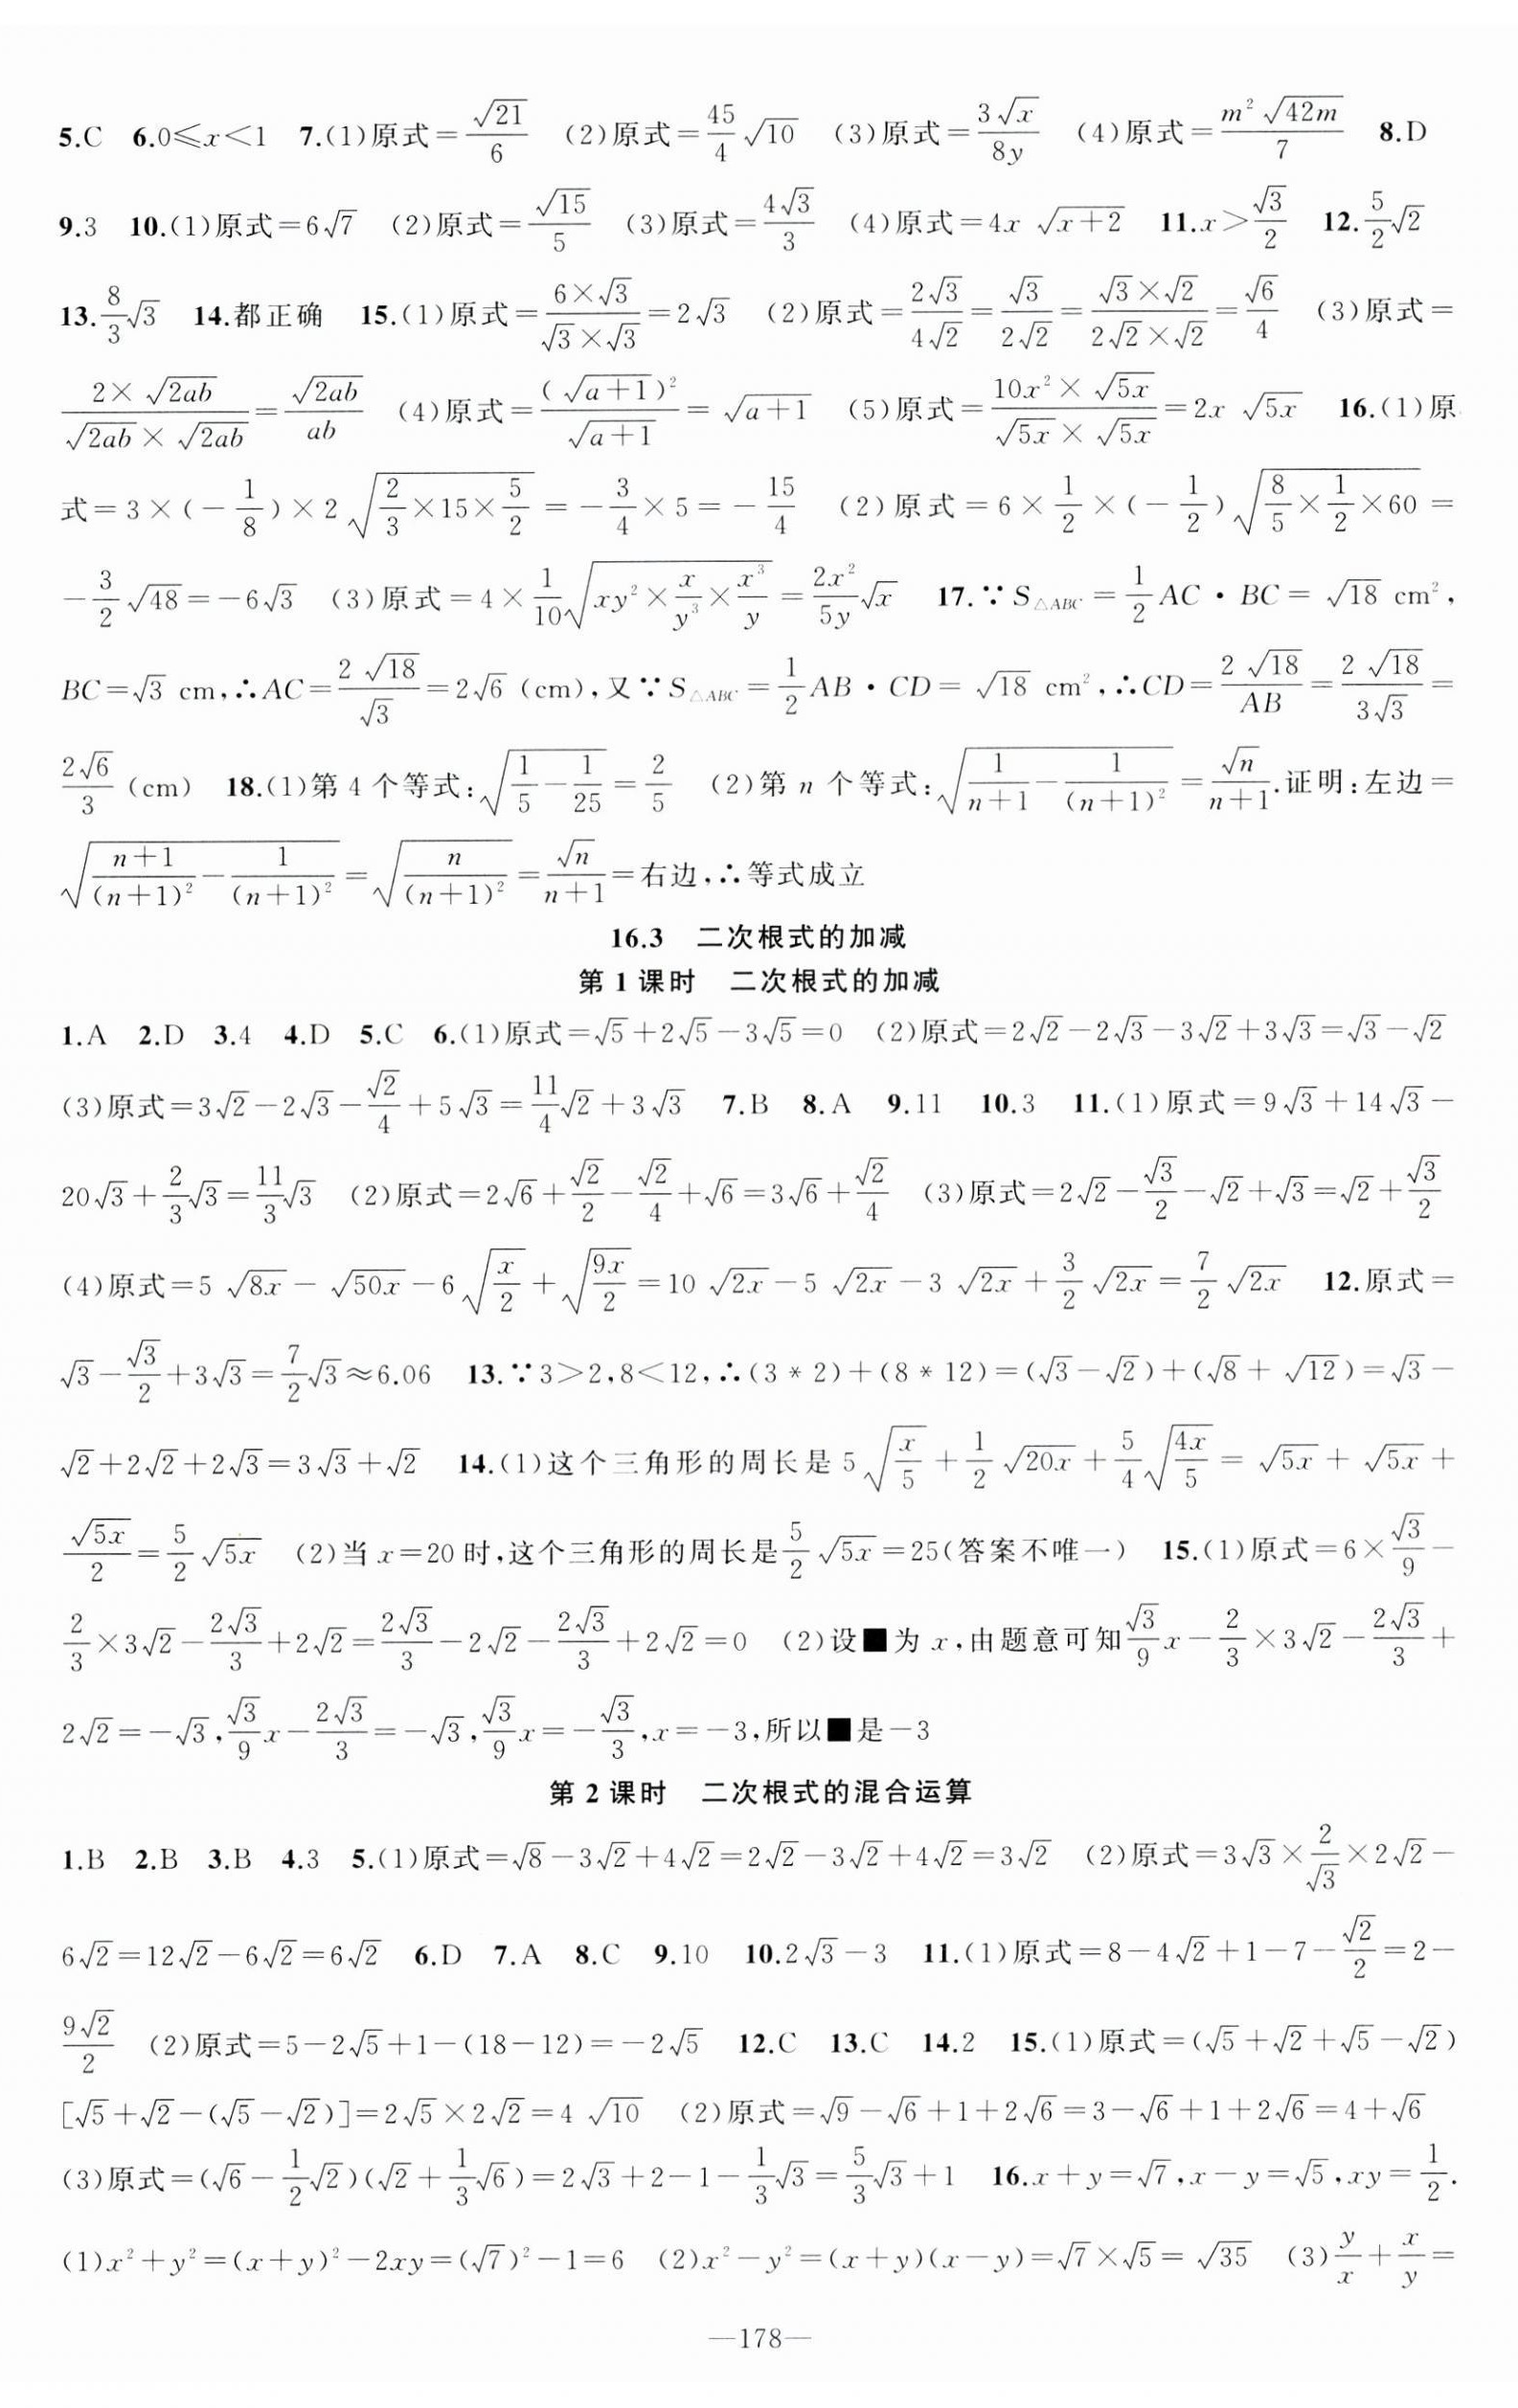 5.C 6.0≤x<1 7.(1)原式=$\frac{\sqrt{21}}{6}$ (2)原式=$\frac{45}{4}\sqrt{10}$ (3)原式=$\frac{3\sqrt{x}}{8y}$ (4)原式=$\frac{m^2\sqrt{42m}}{7}$ 8.D
9.3 10.(1)原式=$6\sqrt{7}$ (2)原式=$\frac{\sqrt{15}}{5}$ (3)原式=$\frac{4\sqrt{3}}{3}$ (4)原式=$4x\sqrt{x+2}$ 11.$x>\frac{\sqrt{3}}{2}$ 12.$\frac{5}{2}\sqrt{2}$
13.$\frac{8}{3}\sqrt{3}$ 14.都正确 15.(1)原式=$\frac{6×\sqrt{3}}{\sqrt{3}×\sqrt{3}}=2\sqrt{3}$ (2)原式=$\frac{2\sqrt{3}}{4\sqrt{2}}=\frac{\sqrt{3}}{2\sqrt{2}}=\frac{\sqrt{3}×\sqrt{2}}{2\sqrt{2}×\sqrt{2}}=\frac{\sqrt{6}}{4}$ (3)原式=
$\frac{2×\sqrt{2ab}}{\sqrt{2ab}×\sqrt{2ab}}=\frac{\sqrt{2ab}}{ab}$ (4)原式=$\frac{(\sqrt{a+1})^2}{\sqrt{a+1}}=\sqrt{a+1}$ (5)原式=$\frac{10x^2×\sqrt{5x}}{\sqrt{5x}×\sqrt{5x}}=2x\sqrt{5x}$ 16.(1)原
式=$3×(-\frac{1}{8})×2\sqrt{\frac{2}{3}×15×\frac{5}{2}}=-\frac{3}{4}×5=-\frac{15}{4}$ (2)原式=$6×\frac{1}{2}×(-\frac{1}{2})\sqrt{\frac{8}{5}×\frac{1}{2}×60}$=
$-\frac{3}{2}\sqrt{48}=-6\sqrt{3}$ (3)原式=$4×\frac{1}{10}\sqrt{xy^2×\frac{x}{y^3}×\frac{x^3}{y}}=\frac{2x^2}{5y}\sqrt{x}$ 17.∵$S_{△ABC}=\frac{1}{2}AC·BC=\sqrt{18}$ cm²,
BC=$\sqrt{3}$ cm,∴AC=$\frac{2\sqrt{18}}{\sqrt{3}}=2\sqrt{6}$(cm),又∵$S_{△ABC}=\frac{1}{2}AB·CD=\sqrt{18}$ cm²,∴CD=$\frac{2\sqrt{18}}{AB}=\frac{2\sqrt{18}}{3\sqrt{3}}$=
$\frac{2\sqrt{6}}{3}$(cm) 18.(1)第4个等式:$\sqrt{\frac{1}{5}-\frac{1}{25}}=\frac{2}{5}$ (2)第n个等式:$\sqrt{\frac{1}{n+1}-\frac{1}{(n+1)^2}}=\frac{\sqrt{n}}{n+1}$.证明:左边=
$\sqrt{\frac{n+1}{(n+1)^2}-\frac{1}{(n+1)^2}}=\sqrt{\frac{n}{(n+1)^2}}=\frac{\sqrt{n}}{n+1}$=右边,∴等式成立
16.3 二次根式的加减
第1课时 二次根式的加减
1.A 2.D 3.4 4.D 5.C 6.(1)原式=$\sqrt{5}+2\sqrt{5}-3\sqrt{5}=0$ (2)原式=$2\sqrt{2}-2\sqrt{3}-3\sqrt{2}+3\sqrt{3}=\sqrt{3}-\sqrt{2}$
(3)原式=$3\sqrt{2}-2\sqrt{3}-\frac{\sqrt{2}}{4}+5\sqrt{3}=\frac{11}{4}\sqrt{2}+3\sqrt{3}$ 7.B 8.A 9.11 10.3 11.(1)原式=$9\sqrt{3}+14\sqrt{3}-$
$20\sqrt{3}+\frac{2}{3}\sqrt{3}=\frac{11}{3}\sqrt{3}$ (2)原式=$2\sqrt{6}+\frac{\sqrt{2}}{2}-\frac{\sqrt{2}}{4}+\sqrt{6}=3\sqrt{6}+\frac{\sqrt{2}}{4}$ (3)原式=$2\sqrt{2}-\frac{\sqrt{3}}{2}-\sqrt{2}+\sqrt{3}=\sqrt{2}+\frac{\sqrt{3}}{2}$
(4)原式=$5\sqrt{8x}-\sqrt{50x}-6\sqrt{\frac{x}{2}}+\sqrt{\frac{9x}{2}}=10\sqrt{2x}-5\sqrt{2x}-3\sqrt{2x}+\frac{3}{2}\sqrt{2x}=\frac{7}{2}\sqrt{2x}$ 12.原式=
$\sqrt{3}-\frac{\sqrt{3}}{2}+3\sqrt{3}=\frac{7}{2}\sqrt{3}≈6.06$ 13.∵3>2,8<12,∴(3*2)+(8*12)=$(\sqrt{3}-\sqrt{2})+(\sqrt{8}+\sqrt{12})=\sqrt{3}-$
$\sqrt{2}+2\sqrt{2}+2\sqrt{3}=3\sqrt{3}+\sqrt{2}$ 14.(1)这个三角形的周长是$5\sqrt{\frac{x}{5}}+\frac{1}{2}\sqrt{20x}+\frac{5}{4}\sqrt{\frac{4x}{5}}=\sqrt{5x}+\sqrt{5x}+$
$\frac{\sqrt{5x}}{2}=\frac{5}{2}\sqrt{5x}$ (2)当x=20时,这个三角形的周长是$\frac{5}{2}\sqrt{5x}=25$(答案不唯一) 15.(1)原式=$6×\frac{\sqrt{3}}{9}-$
$\frac{2}{3}×3\sqrt{2}-\frac{2\sqrt{3}}{3}+2\sqrt{2}=\frac{2\sqrt{3}}{3}-2\sqrt{2}-\frac{2\sqrt{3}}{3}+2\sqrt{2}=0$ (2)设■为x,由题意可知$\frac{\sqrt{3}}{9}x-\frac{2}{3}×3\sqrt{2}-\frac{2\sqrt{3}}{3}+$
$2\sqrt{2}=-\sqrt{3}$,$\frac{\sqrt{3}}{9}x-\frac{2\sqrt{3}}{3}=-\sqrt{3}$,$\frac{\sqrt{3}}{9}x=-\frac{\sqrt{3}}{3}$,x=-3,所以■是-3
第2课时 二次根式的混合运算
1.B 2.B 3.B 4.3 5.(1)原式=$\sqrt{8}-3\sqrt{2}+4\sqrt{2}=2\sqrt{2}-3\sqrt{2}+4\sqrt{2}=3\sqrt{2}$ (2)原式=$3\sqrt{3}×\frac{2}{\sqrt{3}}×2\sqrt{2}-$
$6\sqrt{2}=12\sqrt{2}-6\sqrt{2}=6\sqrt{2}$ 6.D 7.A 8.C 9.10 10.$2\sqrt{3}-3$ 11.(1)原式=$8-4\sqrt{2}+1-7-\frac{\sqrt{2}}{2}=2-$
$\frac{9\sqrt{2}}{2}$ (2)原式=$5-2\sqrt{5}+1-(18-12)=-2\sqrt{5}$ 12.C 13.C 14.2 15.(1)原式=$(\sqrt{5}+\sqrt{2}+\sqrt{5}-\sqrt{2})$
$[\sqrt{5}+\sqrt{2}-(\sqrt{5}-\sqrt{2})]=2\sqrt{5}×2\sqrt{2}=4\sqrt{10}$ (2)原式=$\sqrt{9}-\sqrt{6}+1+2\sqrt{6}=3-\sqrt{6}+1+2\sqrt{6}=4+\sqrt{6}$
(3)原式=$(\sqrt{6}-\frac{1}{2}\sqrt{2})(\sqrt{2}+\frac{1}{3}\sqrt{6})=2\sqrt{3}+2-1-\frac{1}{3}\sqrt{3}=\frac{5}{3}\sqrt{3}+1$ 16.$x+y=\sqrt{7}$,$x-y=\sqrt{5}$,$xy=\frac{1}{2}$.
(1)$x^2+y^2=(x+y)^2-2xy=(\sqrt{7})^2-1=6$ (2)$x^2-y^2=(x+y)(x-y)=\sqrt{7}×\sqrt{5}=\sqrt{35}$ (3)$\frac{y}{x}+\frac{x}{y}$=
—178—